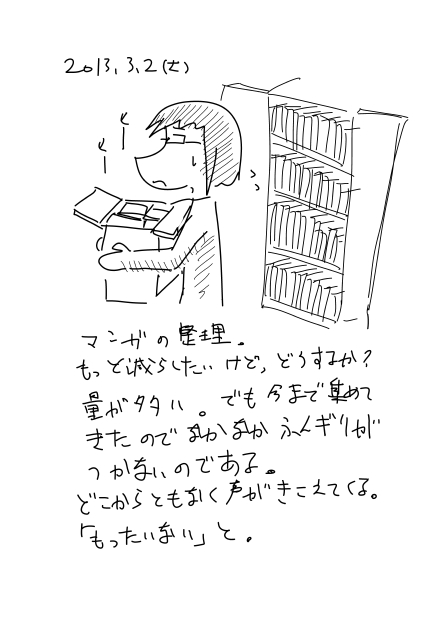 2013.3.2(土)
マンガの整理。
もっと減らしたいけど、どうするか?
量が多い。でも今まで集めて
きたのでなかなかふんぎりが
つかないのである。
どこからともなく声がきこえてくる。
「もったいない」と。